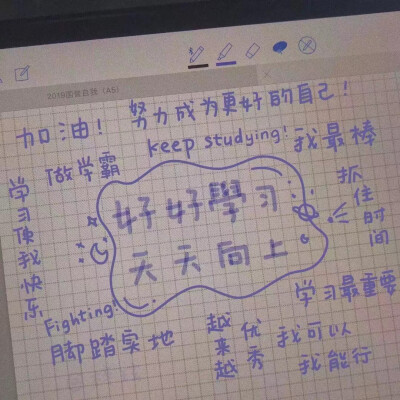 2019国考直营（A5）
努力成为更好的自己！
加油！
keep studying!
我最棒
做学霸
抓住时间
学习使我快乐
好好學习
天天向上
学习最重要
Fighting!
脚踏实地
越来越优秀
我可以
我能行